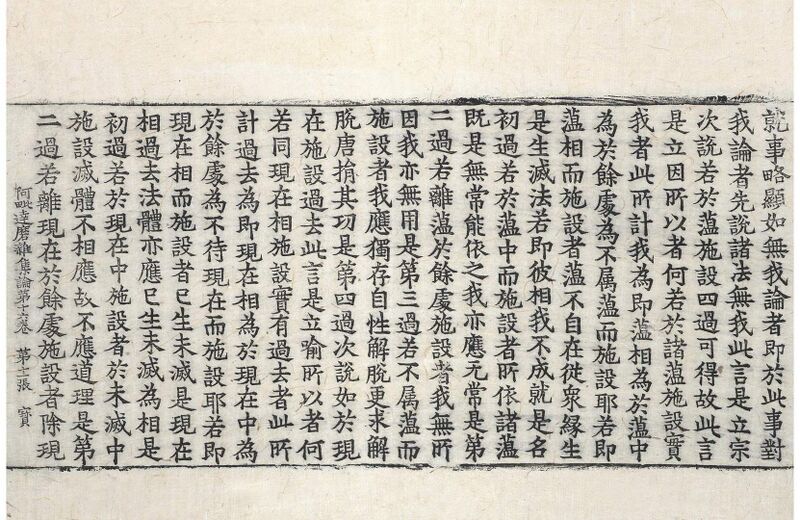 就事略顯如無我論者即於此事對
我論者先說諸法無我此言是立宗
次說若於蘊施設四過可得故此言
是立因所以者何若於諸蘊施設實
我者此所計我為即蘊相為於蘊中
為於餘處為不属蘊而施設耶若即
蘊相而施設者蘊不自在從衆緣生
是生滅法若即彼相我不成就是名
初過若於蘊中而施設者所依諸蘊
既是無常能依之我亦應无常是第
二過若離蘊於餘處施設者我無所
因我亦無用是第三過若不属蘊而
施設者我應獨存自性解脫更求解
脫唐捐其功是第四過次說如於現
在施設過去此言是立喻所以者何
若同現在相施設實有過去者此所
計過去為即現在相為於現在中為
於餘處為不待現在而施設耶若即
現在相而施設者已生未滅是現在
相過去法體亦應已生未滅為相是
初過若於現在中施設者於未滅中
施設滅體不相應故不應道理是第
二過若離現在於餘處施設者除現
阿毗達磨雜集論第十六卷 第十一張 賓